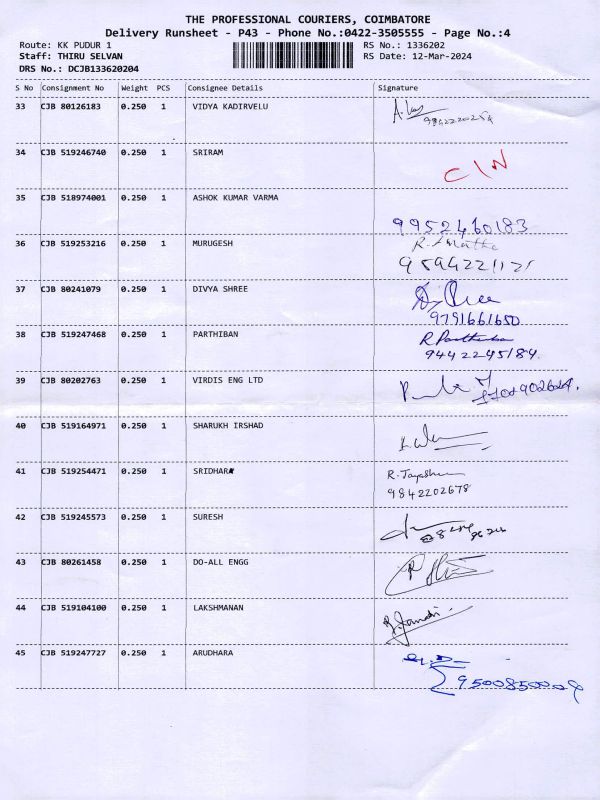 THE PROFESSIONAL COURIERS, COIMBATORE
Delivery Runsheet - P43 - Phone No.:0422-3505555 - Page No.:4
Route: KK PUDUR 1 RS No.: 1336202
Staff: THIRU SELVAN RS Date: 12-Mar-2024
DRS No.: DCJB133620204
S No Consignment No Weight PCS Consignee Details Signature
33 CJB 80126183 0.250 1 VIDYA KADIRVELU
34 CJB 519246740 0.250 1 SRIRAM
C/N
35 CJB 518974001 0.250 1 ASHOK KUMAR VARMA
9952460183
36 CJB 519253216 0.250 1 MURUGESH
37 CJB 80241079 0.250 1 DIVYA SHREE
9791661650
38 CJB 519247468 0.250 1 PARTHIBAN
9442245184.
39 CJB 80202763 0.250 1 VIRDIS ENG LTD
40 CJB 519164971 0.250 1 SHARUKH IRSHAD
41 CJB 519254471 0.250 1 SRIDHAR
9842202678
42 CJB 519245573 0.250 1 SURESH
43 CJB 80261458 0.250 1 DO-ALL ENGG
44 CJB 519104100 0.250 1 LAKSHMANAN
45 CJB 519247727 0.250 1 ARUDHARA